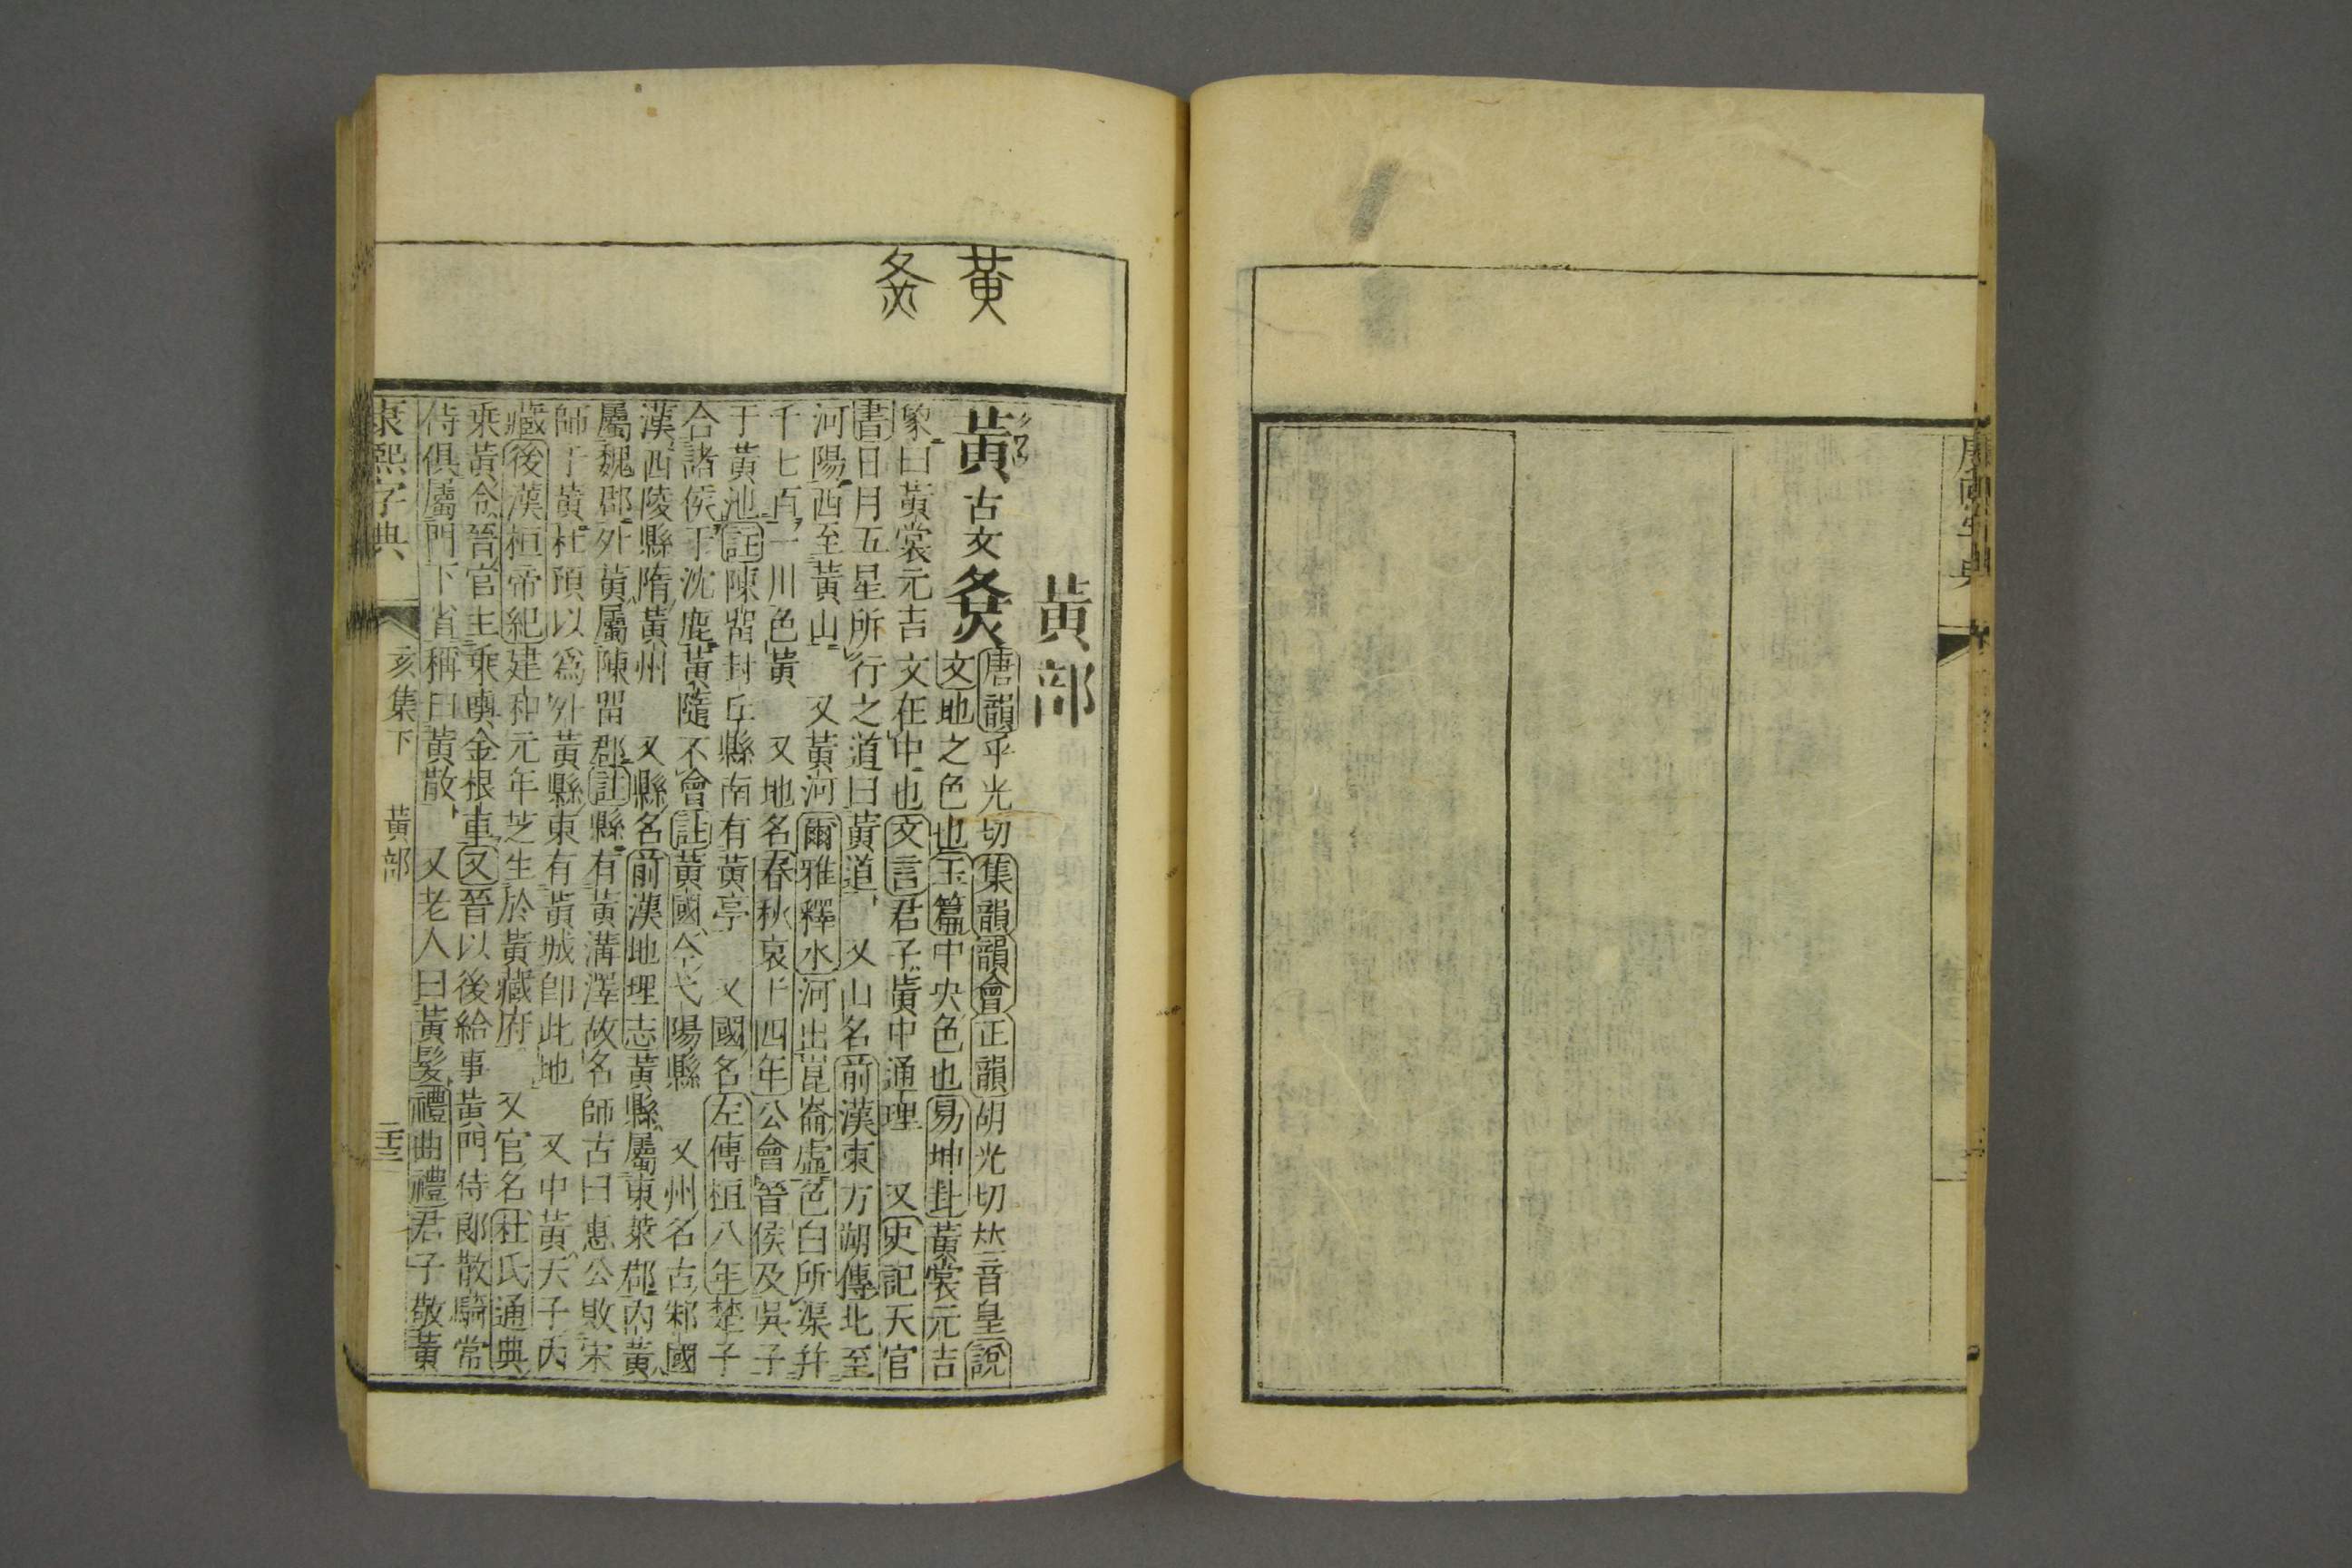 黃
黃部
黃 古文 灸 唐韻乎光切集韻韻會正韻胡光切𠀤音皇說
文地之色也玉篇中央色也易坤卦黃裳元吉
象曰黃裳元吉文在中也文言君子黃中通理 又史記天官
書日月五星所行之道曰黃道 又山名前漢東方朔傳北至
河陽西至黃山 又黃河爾雅釋水河出崑崙虛色白所渠幷
千七百一川色黃 又地名春秋哀十四年公會晉侯及吳子
于黃池註陳留封丘縣南有黃亭 又國名左傳桓八年楚子
合諸侯于沈鹿黃隨不會註黃國今弋陽縣 又州名古邾國
漢西陵縣隋黃州 又縣名前漢地理志黃縣屬東萊郡內黃
屬魏郡外黃屬陳留郡註縣有黃溝澤故名師古曰惠公敗宋
師于黃杜預以爲外黃縣東有黃城卽此地 又中黃天子內
藏後漢桓帝紀建和元年芝生於黃藏府 又官名杜氏通典
乘黃令晉官主乘輿金根車又晉以後給事黃門侍郞散騎常
侍俱屬門下省稱曰黃散 又老人曰黃髮禮曲禮君子敬黃
康熙字典 亥集下 黃部 二十三
康熙字典